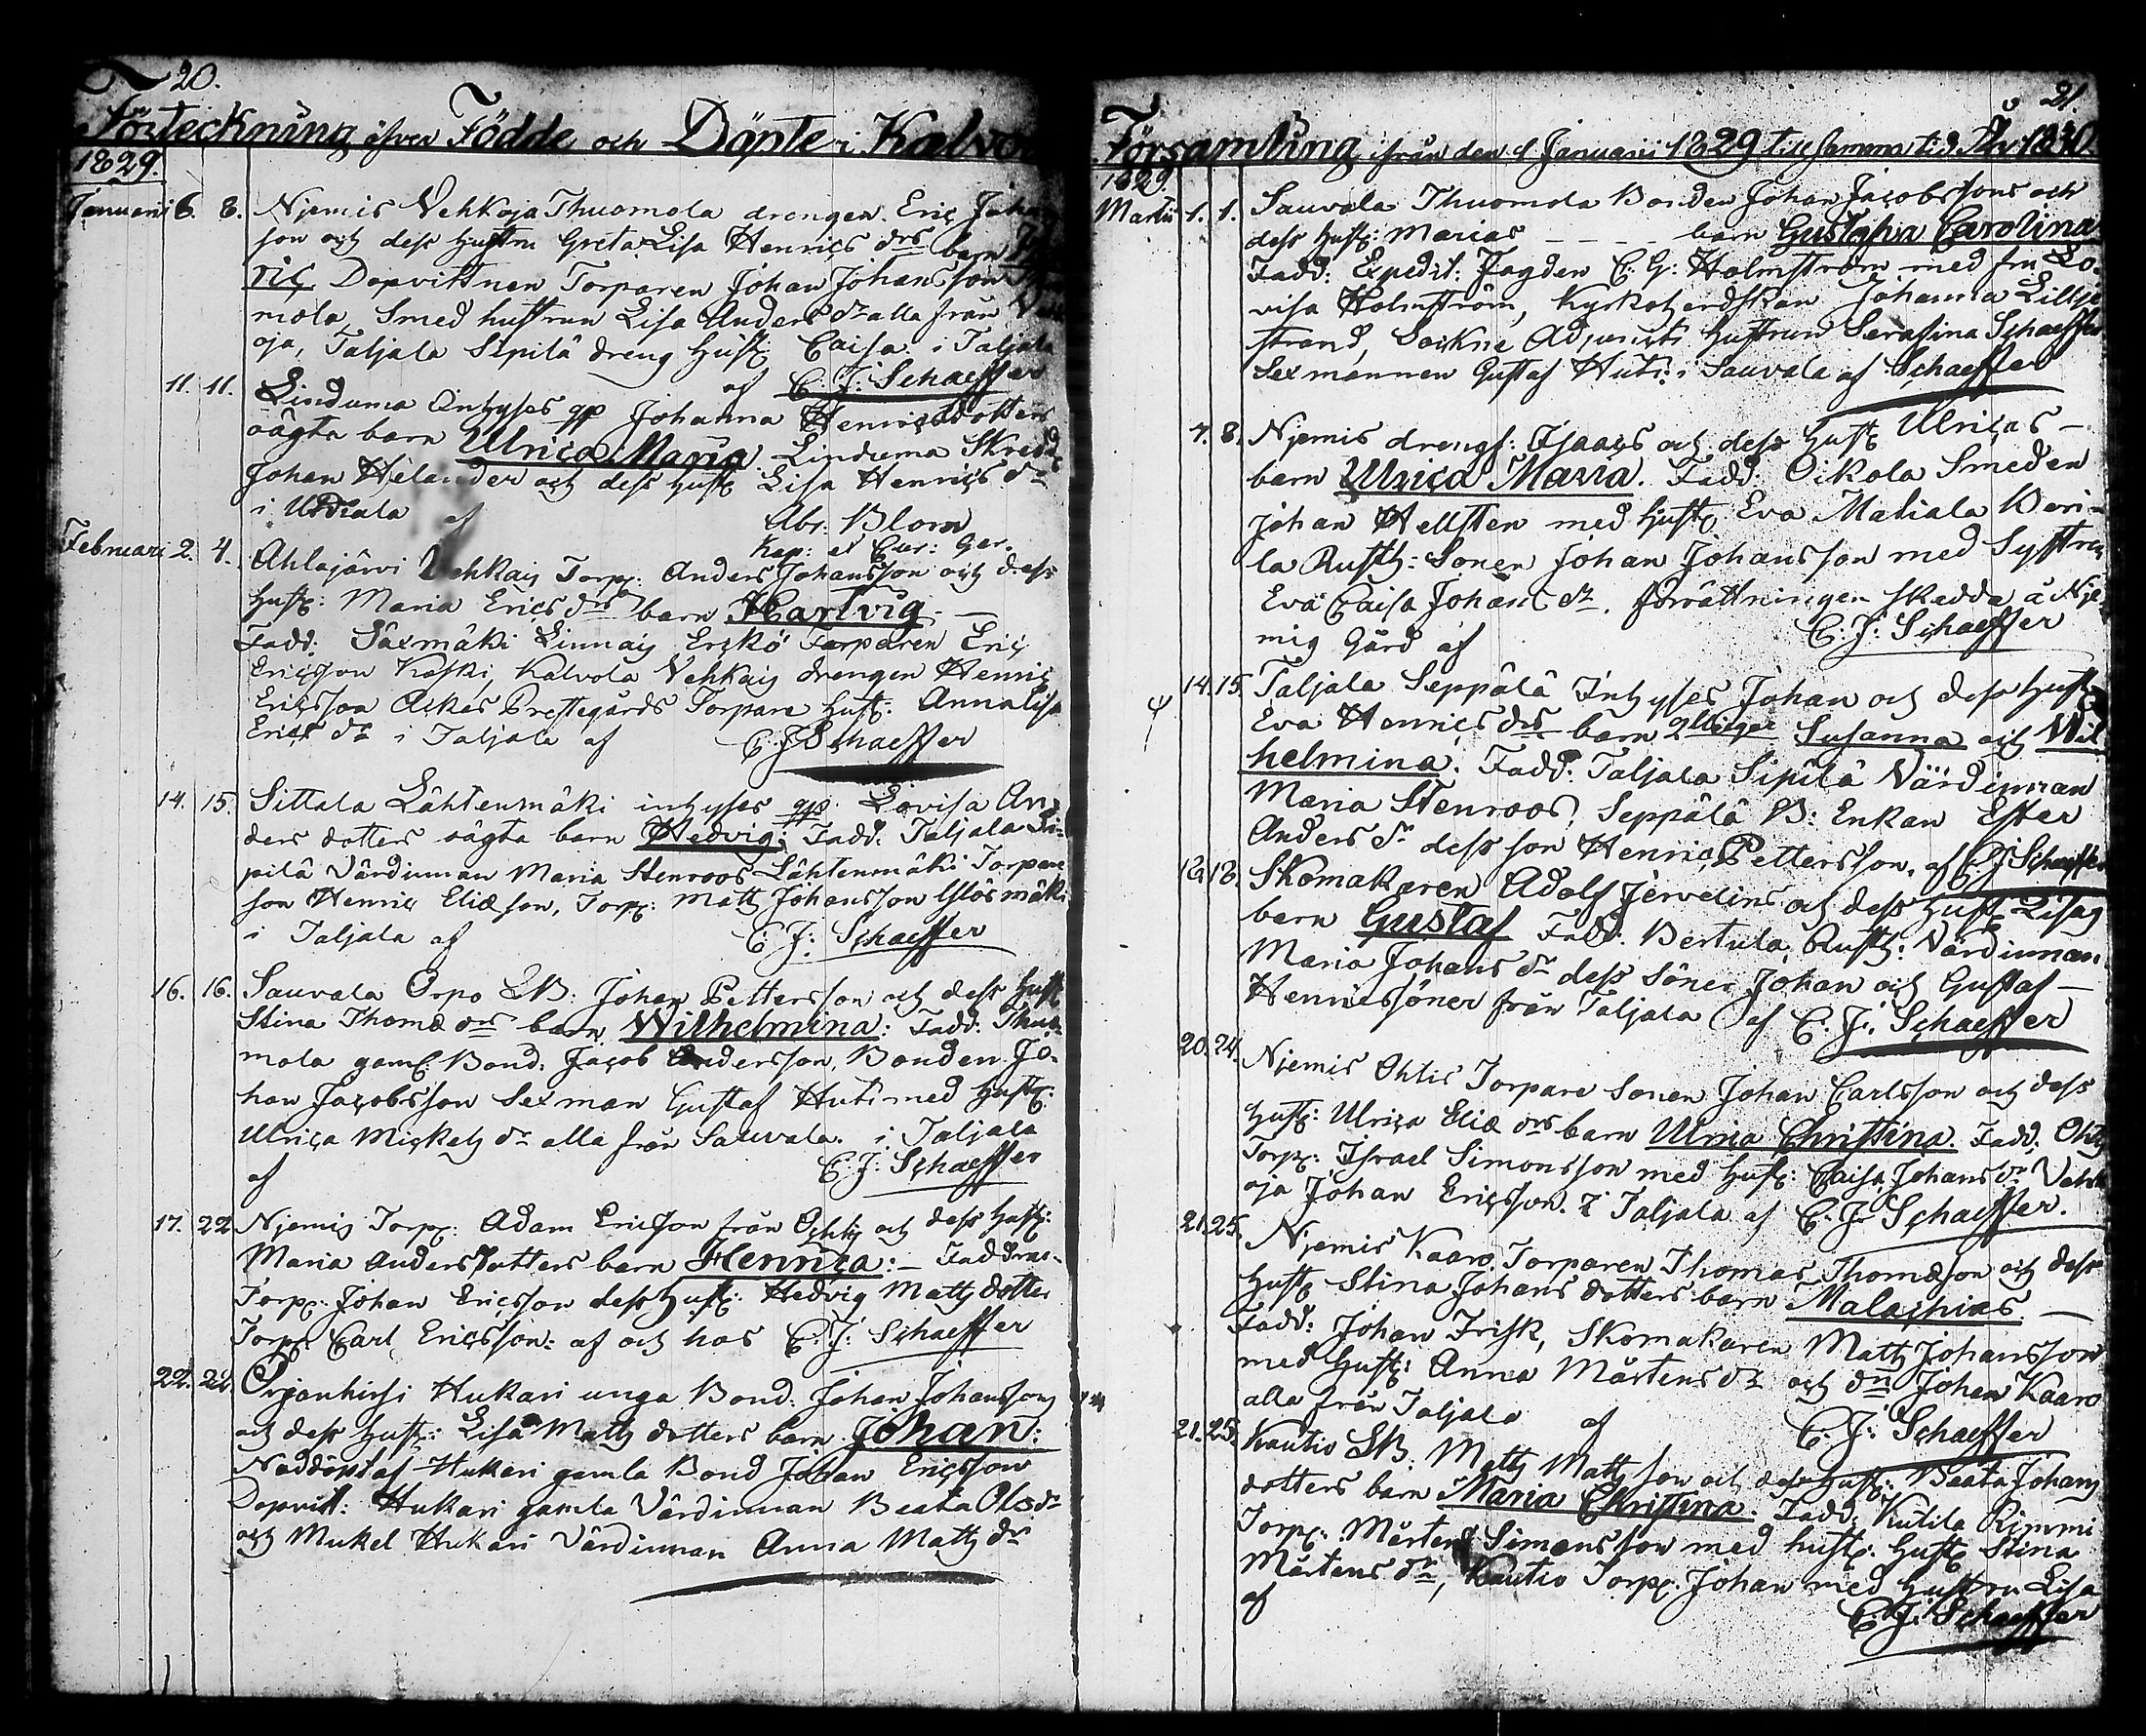 20.
Förteckning öfver Födde och Döpte i Kalvo
1829.
Januari 6. 8. Njemis Vehkoja Thuomola drengen Eric Johan
son och dess hustru Greta Lisa Henrics drs barn
ric Dopvittnen Torparen Johan Johansson
mola, Smed hustrun Lisa Anders dr alla från
oja, Taljala Sipilä dreng hust: Caisa. i Taljala
af C: J: Schaeffer
11. 11. Linduma Inhyses qp Johanna Henricsdotters
oägta barn Ulrica Maria. Linduma Skredd:
Johan Helander och dess hust: Lisa Henrics dr
i Uddiala af Abr. Blom
Kap: et Cur: Ger.
Februari 2. 4. Ahlajärvi Vehkais Torp: Anders Johansson och dess
hust: Maria Erics drs barn Hartvig. —
Fadd: Säxmäki Linnais Erckö Torparen Eric
Ericsson Koski, Kalvola Vehkais drengen Henric
Ericsson Ackas Prestegårds Torpare hust: Anna Lisa
Erics dr i Taljala af C: J Schaeffer
14. 15. Sittala Lähtenmäki inhyses qp: Lovisa An-
ders dotters oägta barn Hedvig; Fadd: Taljala Si-
pilä Värdinnan Maria Stenroos Lähtenmäki Torpare
son Henric Eliæson, Torp: Matts Johansson
i Taljala af C: J: Schaeffer
16. 16. Sauvala Orpo LB: Johan Pettersson och dess hust
Stina Thomæ drs barn Wilhelmina: Fadd: Thuo-
mola gaml: Bond: Jacob Andersson, Bonden Jo-
han Jacobsson Sexman Gustaf Huti med hust:
Ulrica Mickels dr alla från Sauvala. i Taljala
af C: J: Schaeffer
17. 22 Njemis Torp: Adam Ericsson från Ochtis och dess hust:
Maria Andersdotters barn Henrica: — Faddrar.
Torp: Johan Ericsson dess hust: Hedvig Mattsdotter
Torp: Carl Ericsson: af och hos C: J: Schaeffer
22. 22 Orjanhirsi Hukari unga Bond. Johan Johanssons
och dess hust: Lisa Matts dotters barn Johan:
Nöddöpt af Hukari gamla Bond Johan Ericsson
Dopvitt: Hukari gamla Värdinnan Beata Ols dr
och Mukel Hukari Värdinnan Anna Matts dr
21.
Församling ifrån den 1 Januarii 1829 till samma tid År 1830.
1829.
Martii 1. 1. Sauvala Thuomola Bonden Johan Jacobssons och
dess hust: Marias — — — — barn Gustafva Carolina
Fadd: Expedit: Fogden C: G: Holmström med fru Lo-
visa Holmström, Kyrkoherdskan Johanna Lillje
strand, Sockne Adjuncts hustrun Serafina Schaeffer
Sexmannen Gustaf Huti i Sauvala af Schaeffer
7. 8. Njemis drengs: Isaacs och dess hust Ulricas —
barn Ulrica Maria. Fadd: Oikola Smeden
Johan Hellsten med hust: Eva Matiala Kori-
la Rusth: Sonen Johan Johansson med Systren
Eva Caisa Johans dr. förrättningen skedde å Nje-
mis Gård af C: J: Schaeffer
14. 15. Taljala Seppälä Inhyses Johan och dess hust
Eva Henrics drs barn 2llinger Susanna och Wil
helmina. Fadd: Taljala Sipilä Värdinnan
Maria Stenroos, Seppälä B: Enkan Ester
Anders dr dess son Henric Pettersson, af C: J Schaeffer
18. 18. Skomakaren Adolf Jervelins och dess hust Lisas
barn Gustaf Fadd: Bertula Rusth: Värdinnan
Maria Johans dr dess söner Johan och Gustaf —
Henricssöner från Taljala af C: J: Schaeffer
20. 24. Njemis Ohtis Torpare Sonen Johan Carlsson och dess
hust: Ulrica Eliæ drs barn Ulrica Christina. Fadd: Ohtis
Torp: Israel Simonsson med hust: Caisa Johans dr Vehk
oja Johan Ericsson. i Taljala af C: J: Schaeffer.
21. 25. Njemis Kaaro Torparen Thomas Thomæson och dess
hust Stina Johans dotters barn Malachias —
Fadd: Johan Frisk, Skomakaren Matts Johansson
med hust: Anna Mårtens dr och Johan Kaaro
alla från Taljala af C: J: Schaeffer
21. 25. Kautio LB: Matts Mattsson och dess hust: Beata Johans
dotters barn Maria Christina. Fadd: Kutila Rimmi
Torp: Mårten Simonsson med hust: hust Stina
Mårtens dr, Kautio Torp: Johan med hustru Lisa
af C: J: Schaeffer